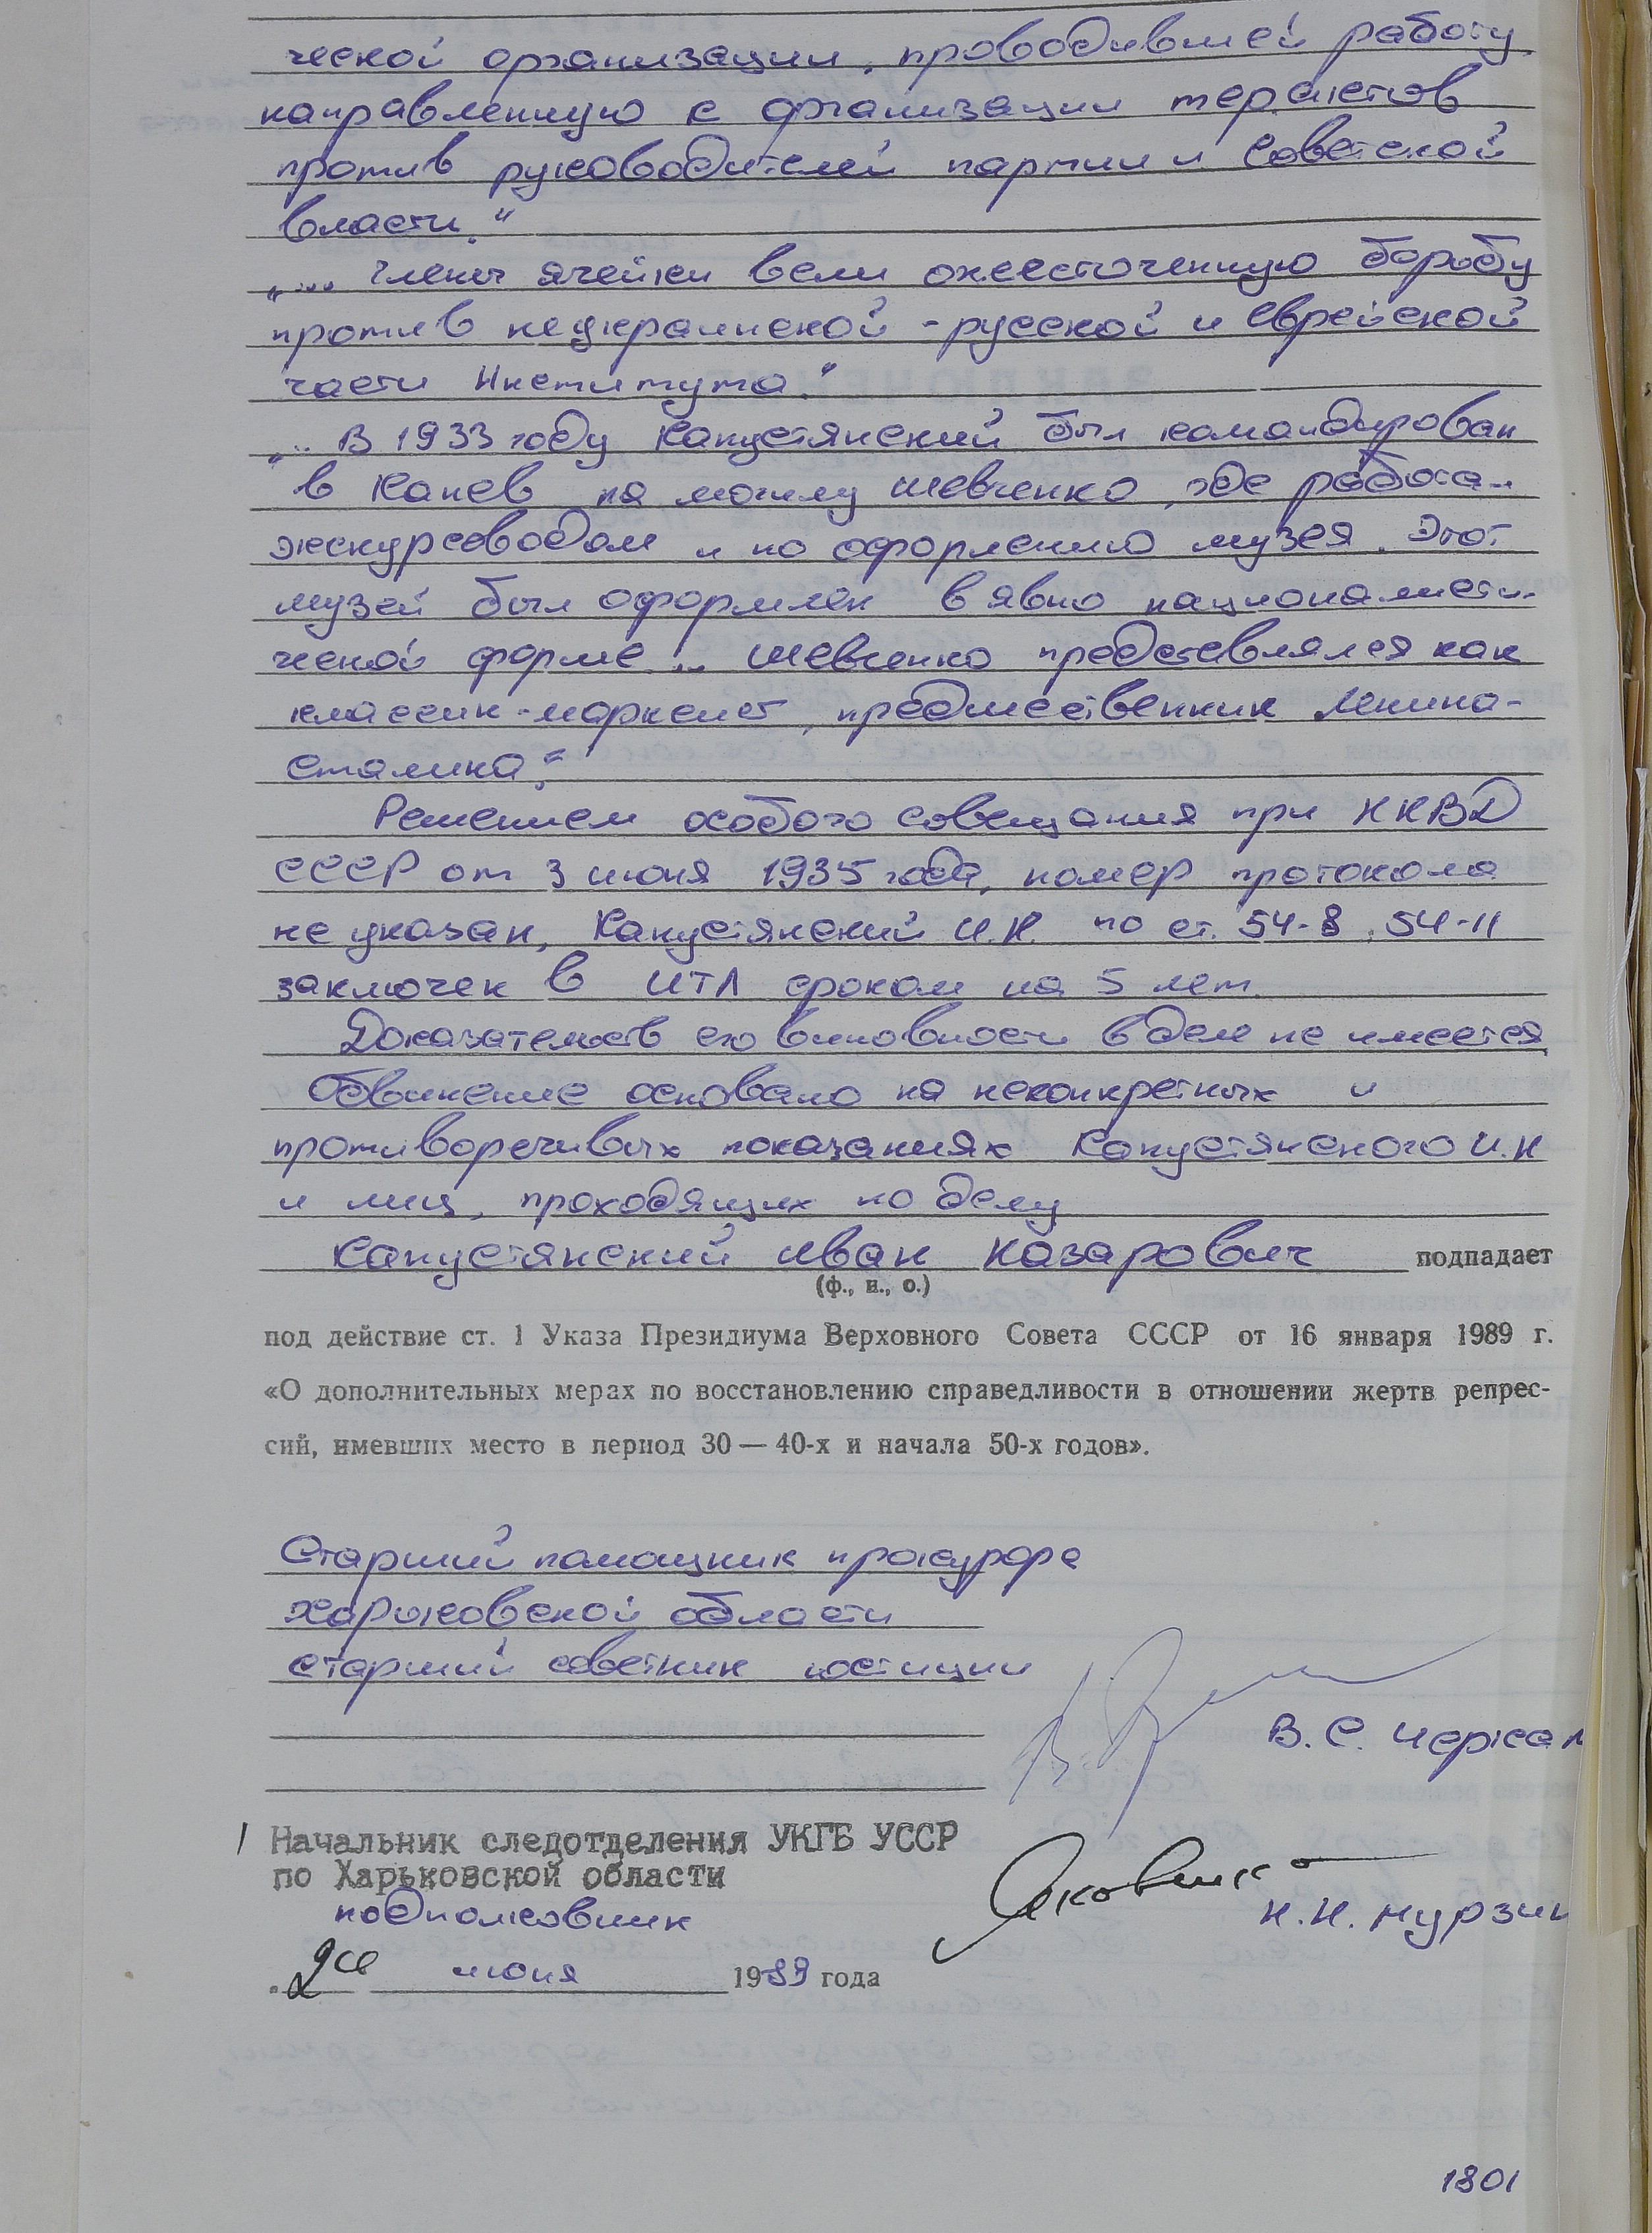 ческой организации, проводившей работу,
направленную к организации терактов
против руководителей партии и Советской
власти."
„... члены ячейки вели ожесточенную борьбу
против неукраинской - русской и еврейской
части Института."
„... В 1933 году Капустянский был командирован
в Канев на могилу Шевченко, где работал
экскурсоводом и по оформлению музея. Этот
музей был оформлен в явно националисти-
ческой форме... Шевченко представлялся как
классик-марксист, предшественник Ленина-
Сталина."
Решением особого совещания при НКВД
СССР от 3 июня 1935 года, номер протокола
не указан, Капустянский И.Н. по ст. 54-8, 54-11
заключен в ИТЛ сроком на 5 лет.
Доказательств его виновности в деле не имеется.
Обвинение основано на неконкретных и
противоречивых показаниях Капустянского И.Н
и лиц, проходящих по делу
Капустянский Иван Назарович подпадает
(ф., и., о.)
под действие ст. 1 Указа Президиума Верховного Совета СССР от 16 января 1989 г.
«О дополнительных мерах по восстановлению справедливости в отношении жертв репрес-
сий, имевших место в период 30 — 40-х и начала 50-х годов».
Старший помощник прокурора
Харьковской области
старший советник юстиции
В. С.
Начальник следотделения УКГБ УССР
по Харьковской области
подполковник
Н. Н. Мурзин
июня 1989 года
1801